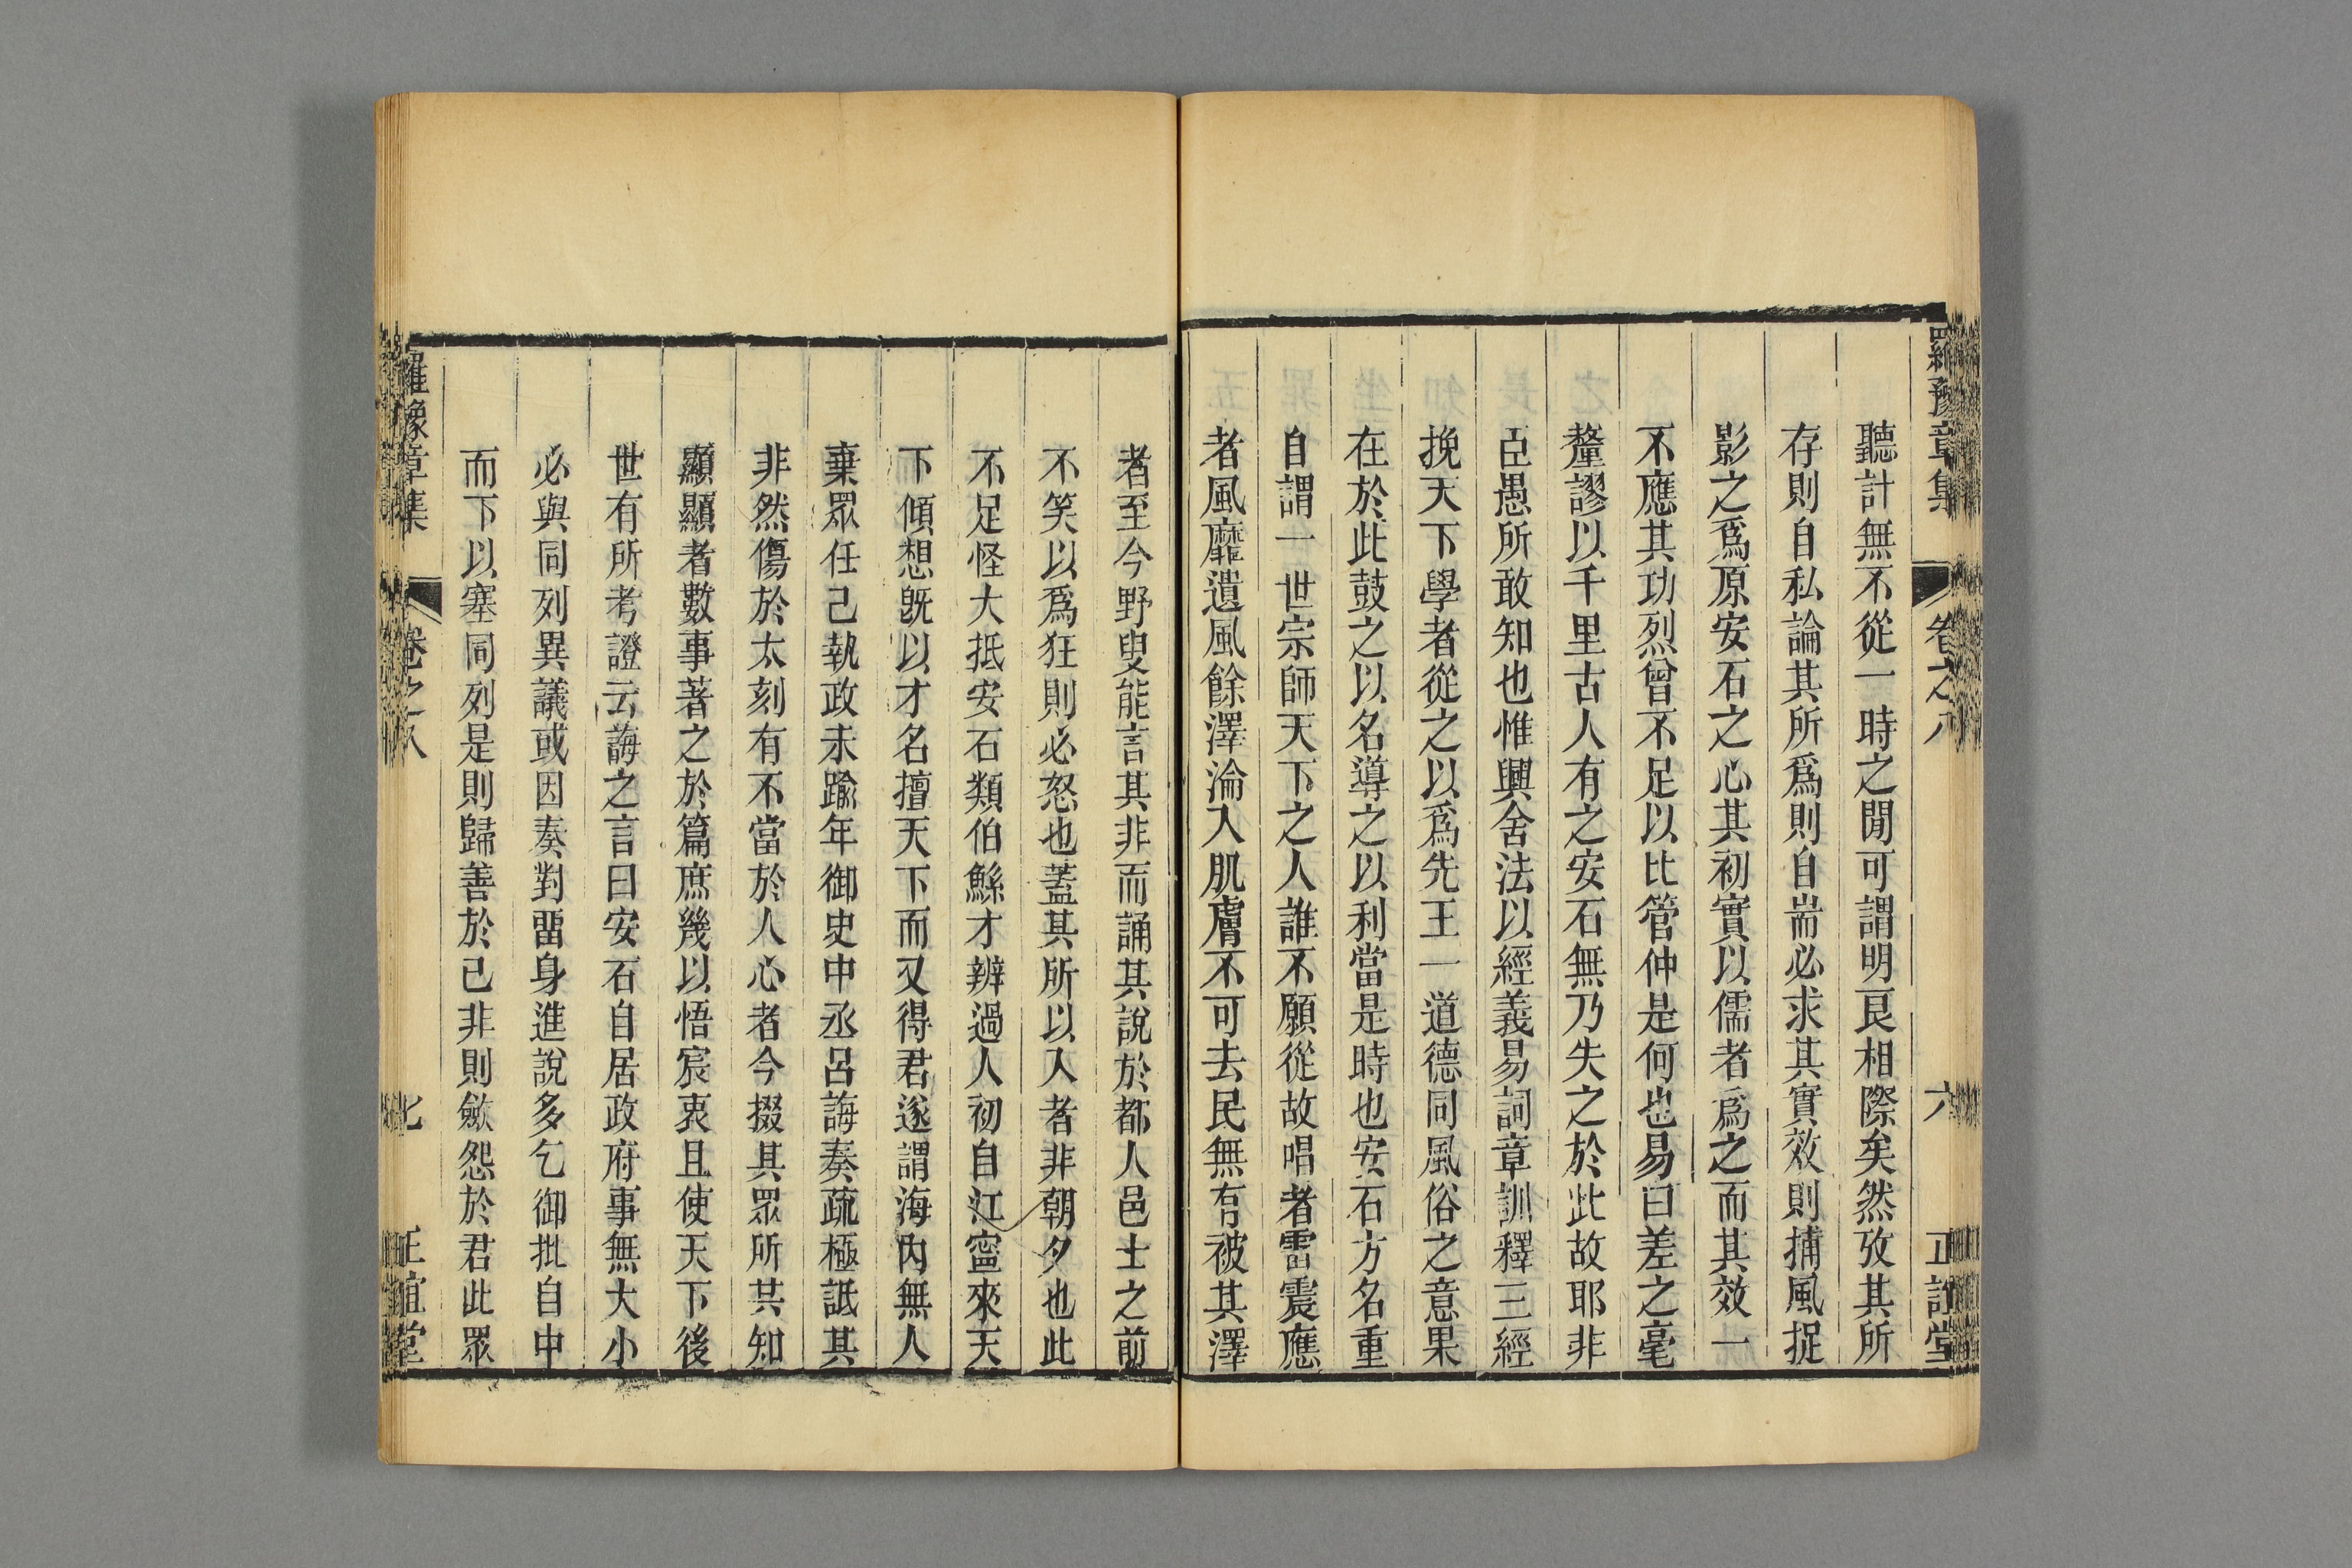 羅豫章集 卷之八 六 正誼堂
聽計無不從一時之閒可謂明良相際矣然攷其所
存則自私論其所爲則自耑必求其實效則捕風捉
影之爲原安石之心其初實以儒者爲之而其效一
不應其功烈曾不足以比管仲是何也易曰差之毫
釐謬以千里古人有之安石無乃失之於此故耶非
臣愚所敢知也惟興舍法以經義易詞章訓釋三經
挽天下學者從之以爲先王一道德同風俗之意果
在於此鼓之以名導之以利當是時也安石方名重
自謂一世宗師天下之人誰不願從故唱者雷震應
者風靡遺風餘澤淪入肌膚不可去民無有被其澤
者至今野叟能言其非而誦其說於都人邑士之前
不笑以爲狂則必怒也蓋其所以入者非朝夕也此
不足怪大抵安石類伯鯀才辨過人初自江寧來天
下傾想旣以才名擅天下而又得君遂謂海內無人
棄眾任己執政未踰年御史中丞呂誨奏疏極詆其
非然傷於太刻有不當於人心者今掇其眾所共知
顯顯者數事著之於篇庶幾以悟宸衷且使天下後
世有所考證云誨之言曰安石自居政府事無大小
必與同列異議或因奏對畱身進說多乞御批自中
而下以塞同列是則歸善於己非則斂怨於君此眾
羅豫章集 卷之八 七 正誼堂